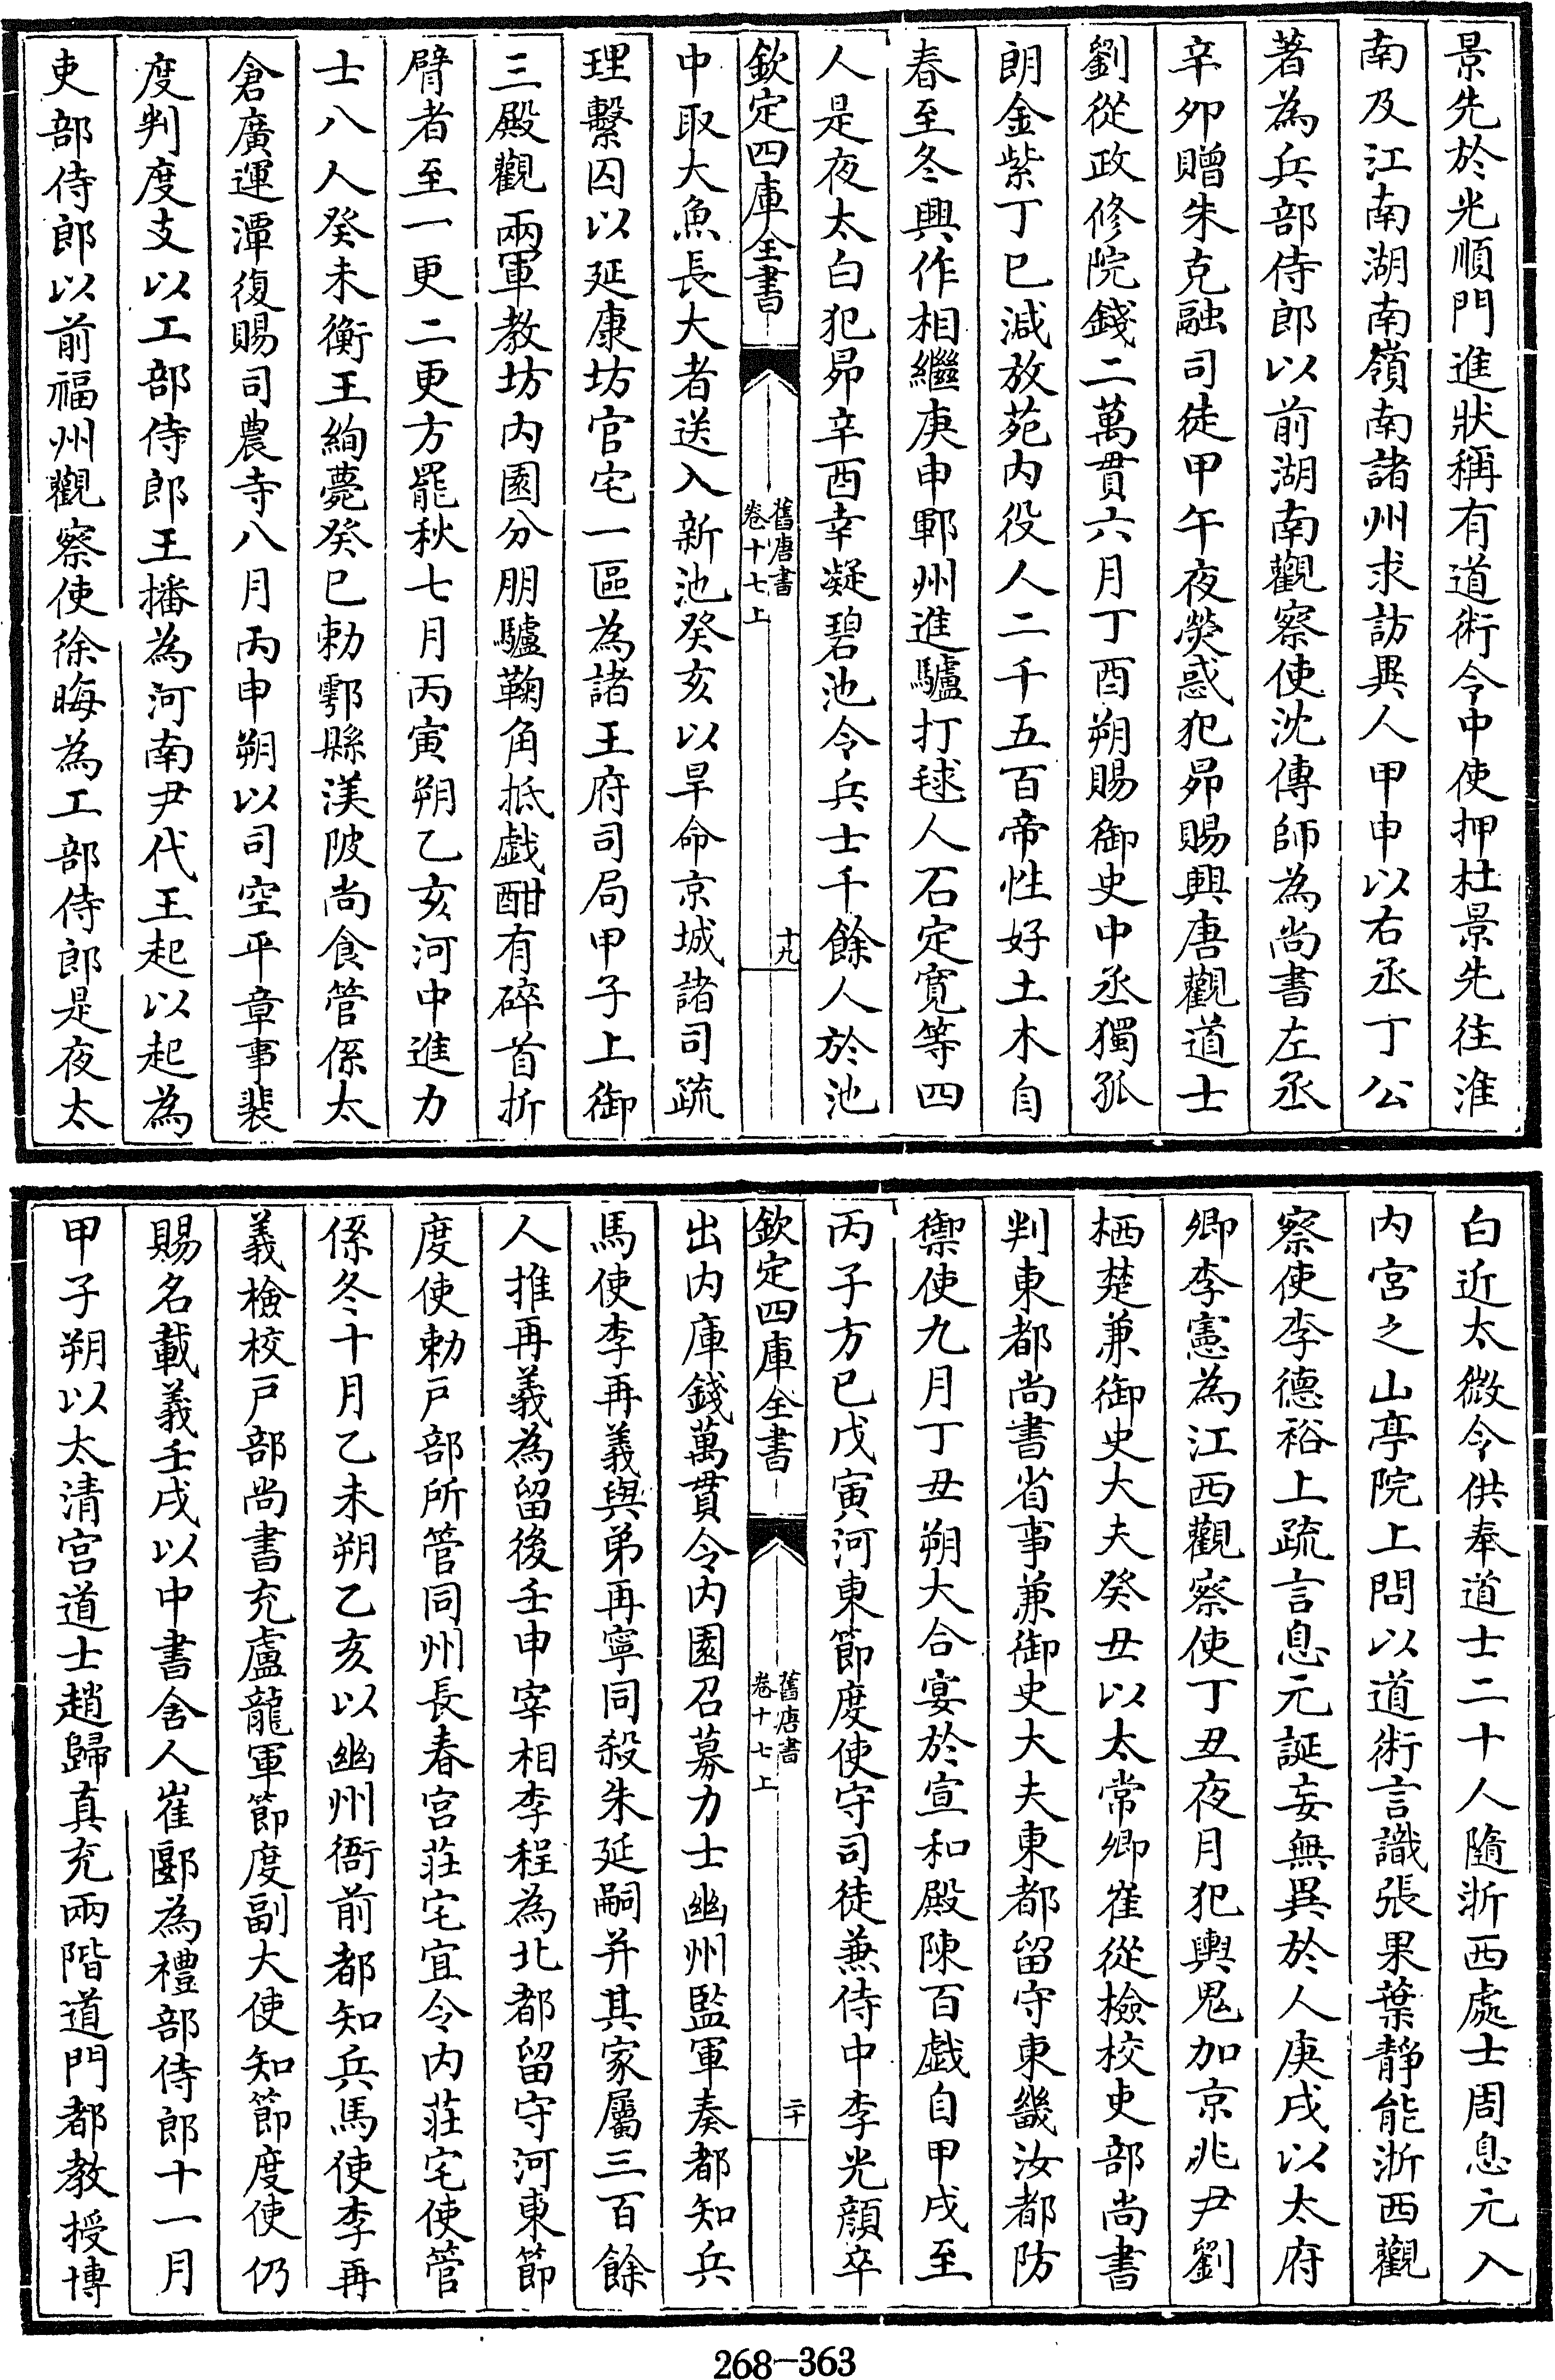 景先於光順門進狀稱有道術令中使押杜景先往淮
南及江南湖南嶺南諸州求訪異人甲申以右丞丁公
著為兵部侍郎以前湖南觀察使沈傳師為尚書左丞
辛夘贈朱克融司徒甲午夜熒惑犯昴賜興唐觀道士
劉從政修院錢二萬貫六月丁酉朔賜御史中丞獨孤
朗金紫丁巳減放苑内役人二千五百帝性好土木自
春至冬興作相繼庚申鄆州進驢打毬人石定寛等四
人是夜太白犯昴辛酉幸凝碧池令兵士千餘人於池
欽定四庫全書
舊唐書
卷十七上
十九
中取大魚長大者送入新池癸亥以旱命京城諸司疏
理繫囚以延康坊官宅一區為諸王府司局甲子上御
三殿觀兩軍教坊内園分朋驢鞠角抵戯酣有碎首折
臂者至一更二更方罷秋七月丙寅朔乙亥河中進力
士八人癸未衡王絢薨癸巳勅鄠縣渼陂尚食管係太
倉廣運潭復賜司農寺八月丙申朔以司空平章事裴
度判度支以工部侍郎王播為河南尹代王起以起為
吏部侍郎以前福州觀察使徐晦為工部侍郎是夜太
白近太微令供奉道士二十人隨浙西處士周息元入
内宮之山亭院上問以道術言識張果葉靜能浙西觀
察使李德裕上疏言息元誕妄無異於人庚戌以太府
卿李憲為江西觀察使丁丑夜月犯輿鬼加京兆尹劉
栖楚兼御史大夫癸丑以太常卿崔從檢校吏部尚書
判東都尚書省事兼御史大夫東都留守東畿汝都防
禦使九月丁丑朔大合宴於宣和殿陳百戯自甲戌至
丙子方巳戊寅河東節度使守司徒兼侍中李光顔卒
欽定四庫全書
舊唐書
卷十七上
二十
出内庫錢萬貫令内園召募力士幽州監軍奏都知兵
馬使李再義與弟再寧同殺朱延嗣并其家屬三百餘
人推再義為留後壬申宰相李程為北都留守河東節
度使勅戸部所管同州長春宮莊宅宜令内莊宅使管
係冬十月乙未朔乙亥以幽州衙前都知兵馬使李再
義檢校戸部尚書充盧龍軍節度副大使知節度使仍
賜名載義壬戌以中書舍人崔郾為禮部侍郎十一月
甲子朔以太清宮道士趙歸真充兩階道門都教授博
268-363